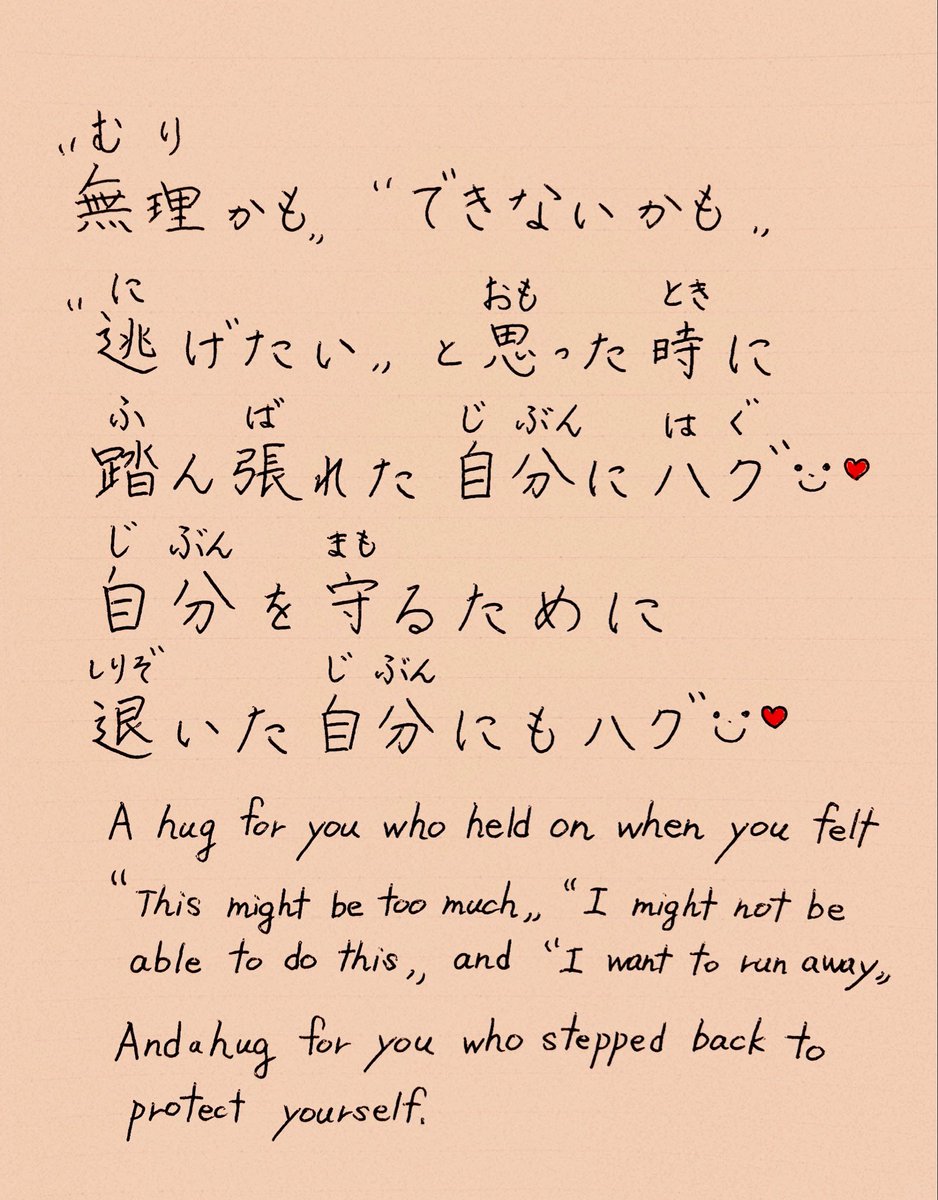 むり
“無理かも„ “できないかも„
に おも とき
“逃げたい„ と思った時に
ふ ば じ ぶん は ぐ
踏ん張れた 自分に ハグ
じ ぶん まも
自分を守るために
しりぞ じ ぶん
退いた自分にもハグ
A hug for you who held on when you felt
“This might be too much„ “I might not be
able to do this„ and “I want to run away„
And a hug for you who stepped back to
protect yourself.